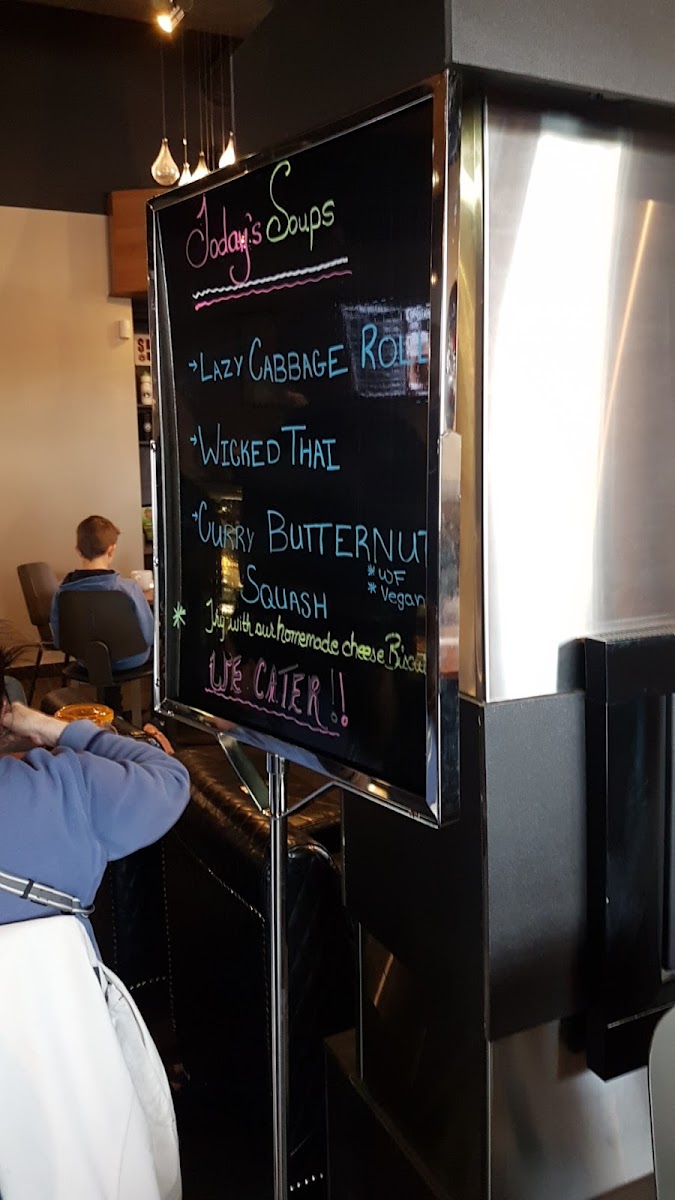 Today's Soups
→LAZY CABBAGE ROLL
→WICKED THAI
→CURRY BUTTERNUT
SQUASH
* WF
* Vegan
* Try with our homemade cheese
WE CATER!!